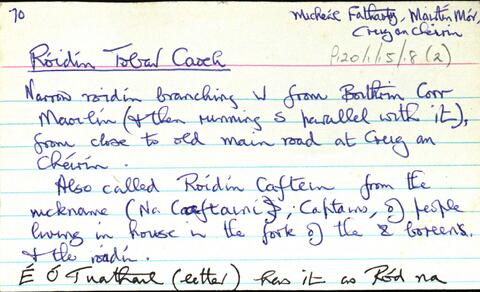 70
Micheál Fatharty, Máirtín Mór,
Creig an Chéirín
P120/1/5/8 (2)
Róidín Tobar Caoch
Narrow róidín branching W from Boithrín Corr
Maoilín (& then running S parallel with it),
from close to old main road at Creig an
Chéirín.
Also called Róidín Caftein from the
nickname (Na Captainí, Captains, of) people
living in house in the fork of the 2 boreens.
& the róidín.
É Ó Tuathail (letter) has it as Ród na